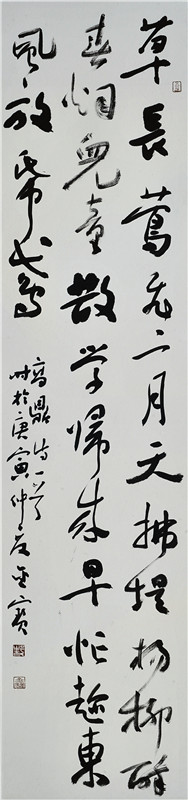 草長鶯飛二月天拂堤楊柳醉
春烟兒童散學歸來早忙趁東
風放帋鳶
高鼎詩一首
時於庚寅仲夏